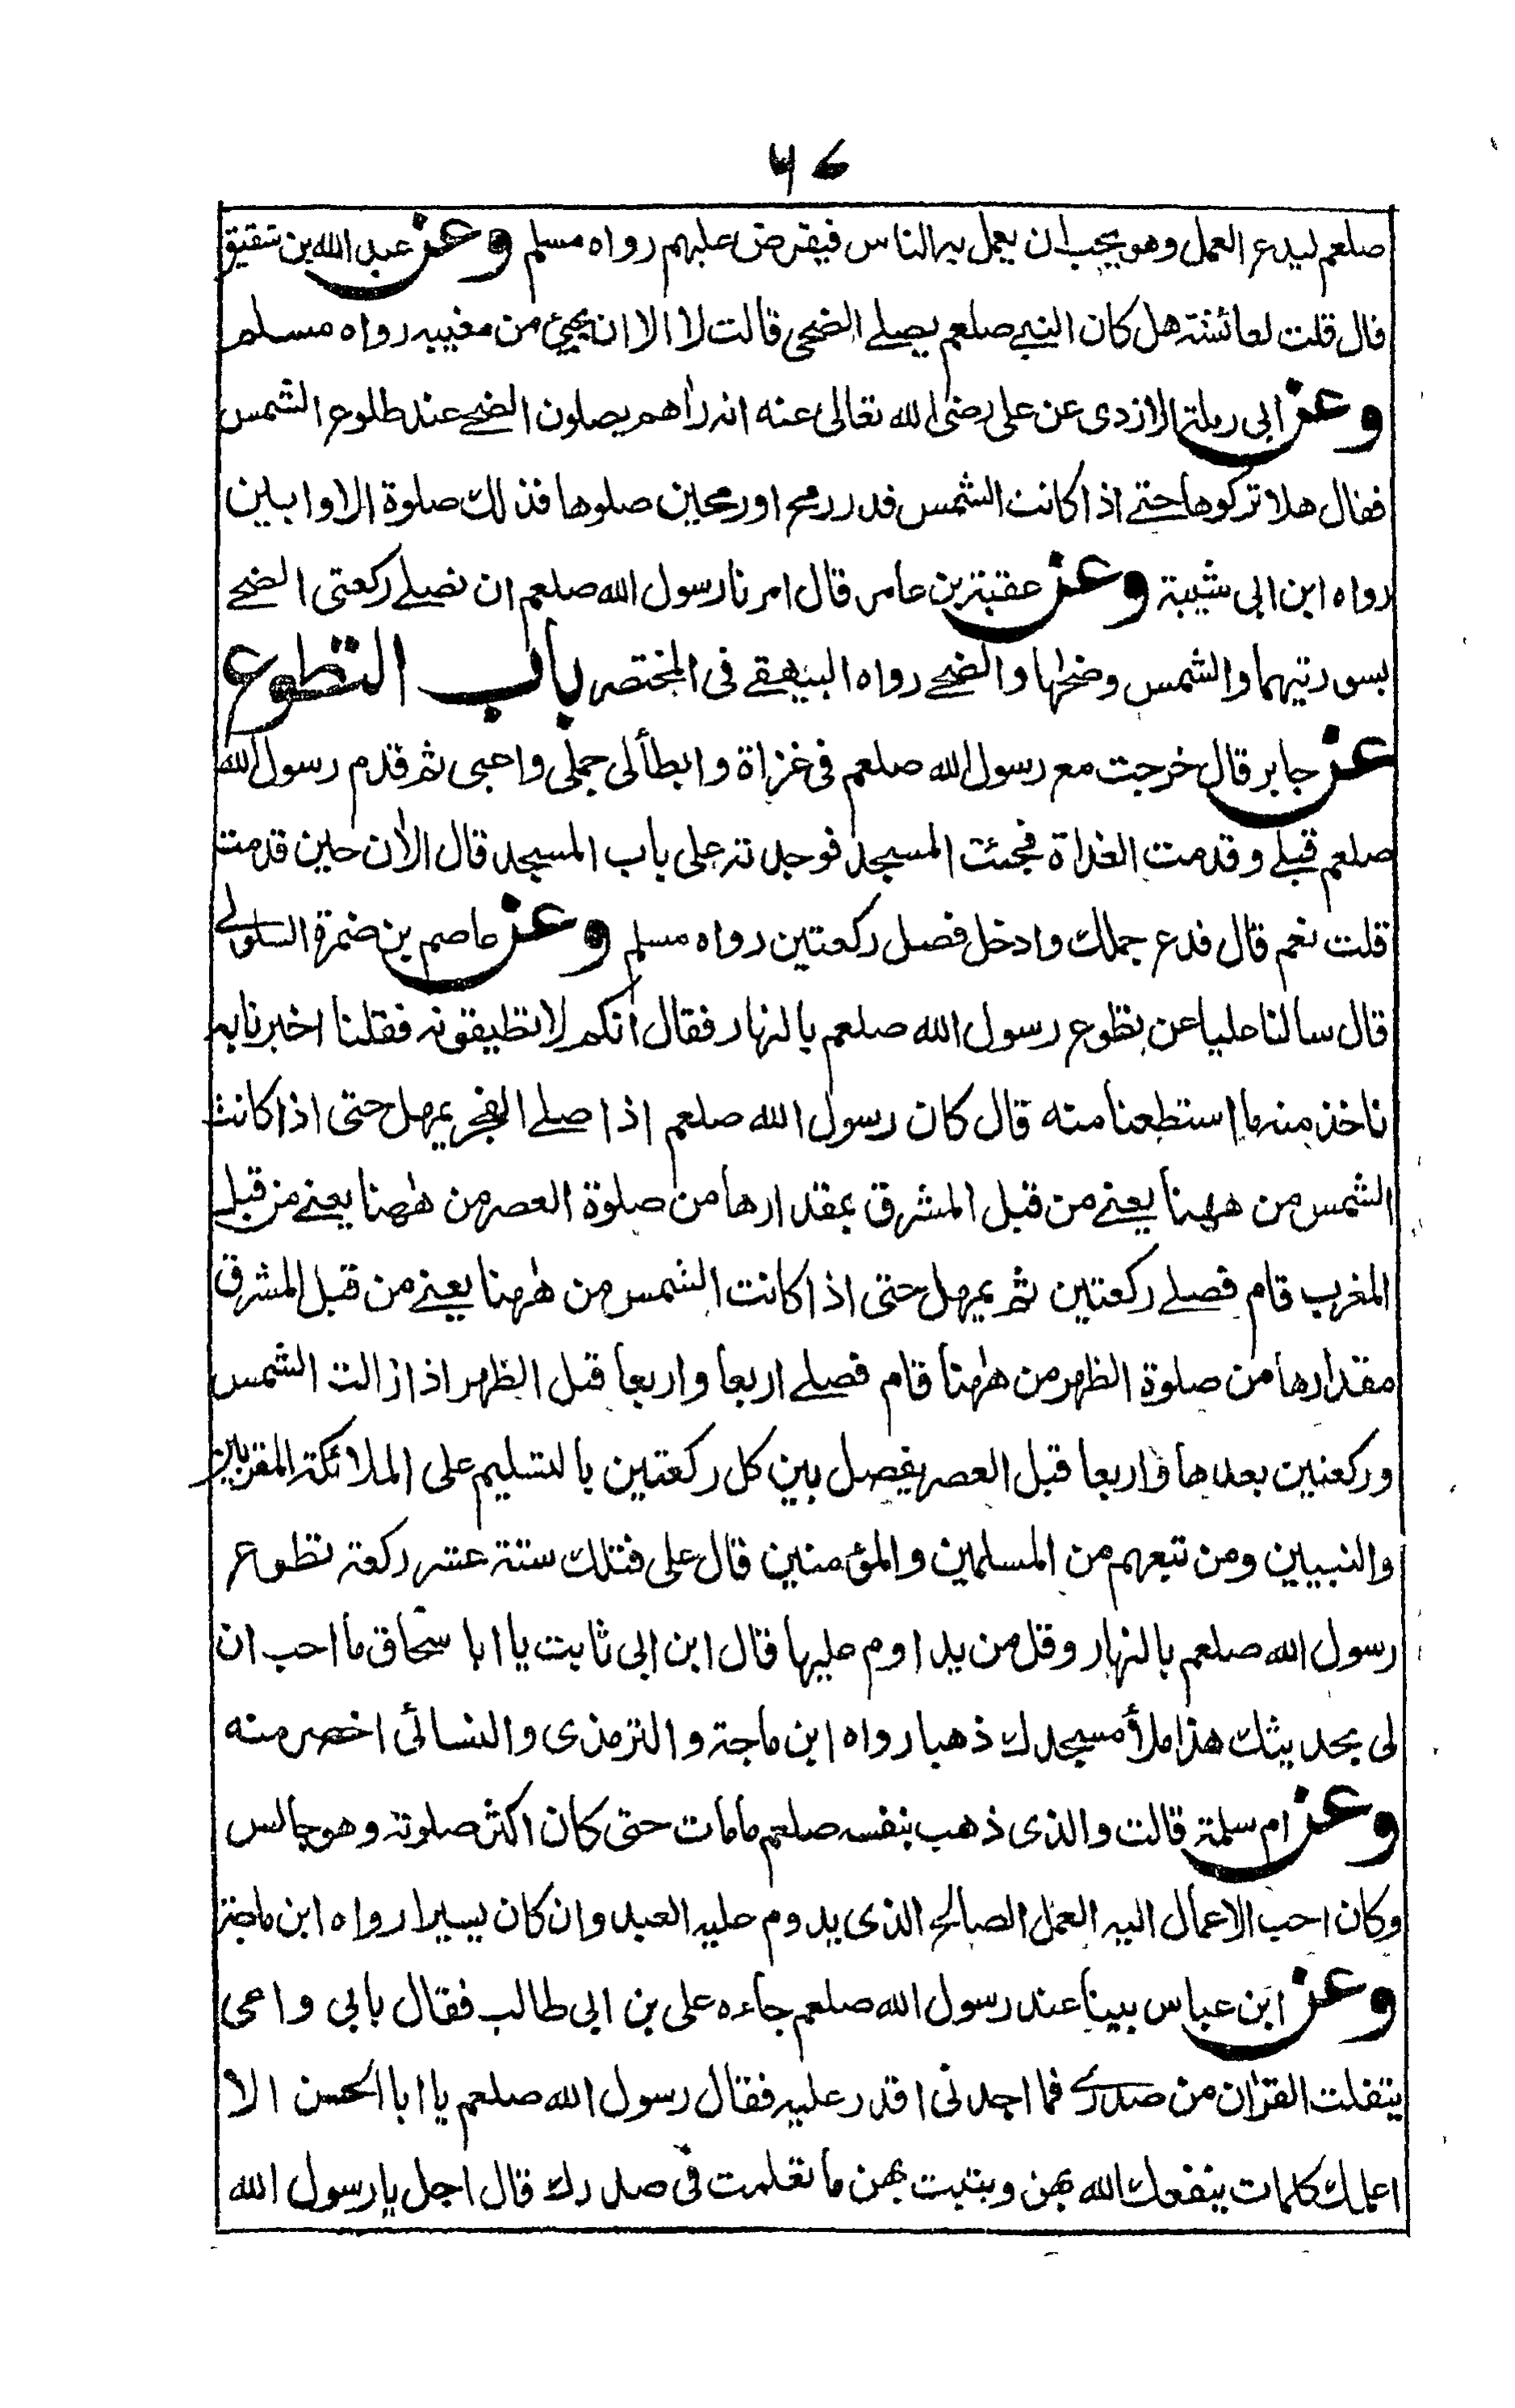 ۶۷
صلعم ليدع العمل وهو يحب ان يعمل به الناس فيفرض عليهم رواه مسلم وعن عبد الله بن شقيق
قال قلت لعائشة هل كان النبي صلعم يصلے الضحى قالت لا الا ان يجيئ من مغيبه رواه مسلم
وعن ابى رملة الازدى عن على رضى الله تعالى عنه انه رآهم يصلون الضحے عند طلوع الشمس
فقال هلا تركوها حتے اذا كانت الشمس قدر رمح او رمحين صلوها فذلك صلوة الاوابين
رواه ابن ابى شيبة وعن عقبة بن عامر قال امرنا رسول الله صلعم ان نصلے ركعتى الضحے
بسورتيهما والشمس وضحٰها والضحے رواه البيهقے فى المختصر باب التطوع
عن جابر قال خرجت مع رسول الله صلعم فى غزاة وابطأ لى جملى واعيى ثم قدم رسول الله
صلعم قبلے وقدمت الغداة فجئت المسجد فوجدته على باب المسجد قال الاٰن حين قدمت
قلت نعم قال فدع جملك وادخل فصل ركعتين رواه مسلم وعن عاصم بن ضمرة السلولے
قال سالنا عليا عن تطوع رسول الله صلعم بالنهار فقال انكم لا تطيقونه فقلنا اخبرنا به
ناخذ منه ما استطعنا منه قال كان رسول الله صلعم اذا صلے الفجر يمهل حتى اذا كانت
الشمس من ههنا يعنے من قبل المشرق بمقدارها من صلوة العصر من هٰهنا يعنے من قبل
المغرب قام فصلے ركعتين ثم يمهل حتى اذا كانت الشمس من هٰهنا يعنے من قبل المشرق
مقدارها من صلوة الظهر من هٰهنا قام فصلے اربعا واربعا قبل الظهر اذا زالت الشمس
وركعتين بعدها واربعا قبل العصر يفصل بين كل ركعتين بالتسليم على الملائكة المقربين
والنبيين ومن تبعهم من المسلمين والمؤمنين قال على فتلك ستة عشر ركعة تطوع
رسول الله صلعم بالنهار وقل من يداوم عليها قال ابن ابى ثابت يا ابا سحاق ما احب ان
لى بحديثك هذا ملأ مسجدك ذهبا رواه ابن ماجة والترمذى والنسائى اخصر منه
وعن ام سلمة قالت والذى ذهب بنفسه صلعم ما مات حتى كان اكثر صلوته وهو جالس
وكان احب الاعمال اليه العمل الصالح الذى يدوم عليه العبد وان كان يسيرا رواه ابن ماجة
وعن ابن عباس بينا عند رسول الله صلعم جاءه على بن ابى طالب فقال بابى وامى
يتفلت القراٰن من صدرى فما اجدنى اقدر عليه فقال رسول الله صلعم يا ابا الحسن الا
اعلمك كلمات ينفعك الله بهن ويثبت بهن ما تعلمت فى صدرك قال اجل يا رسول الله